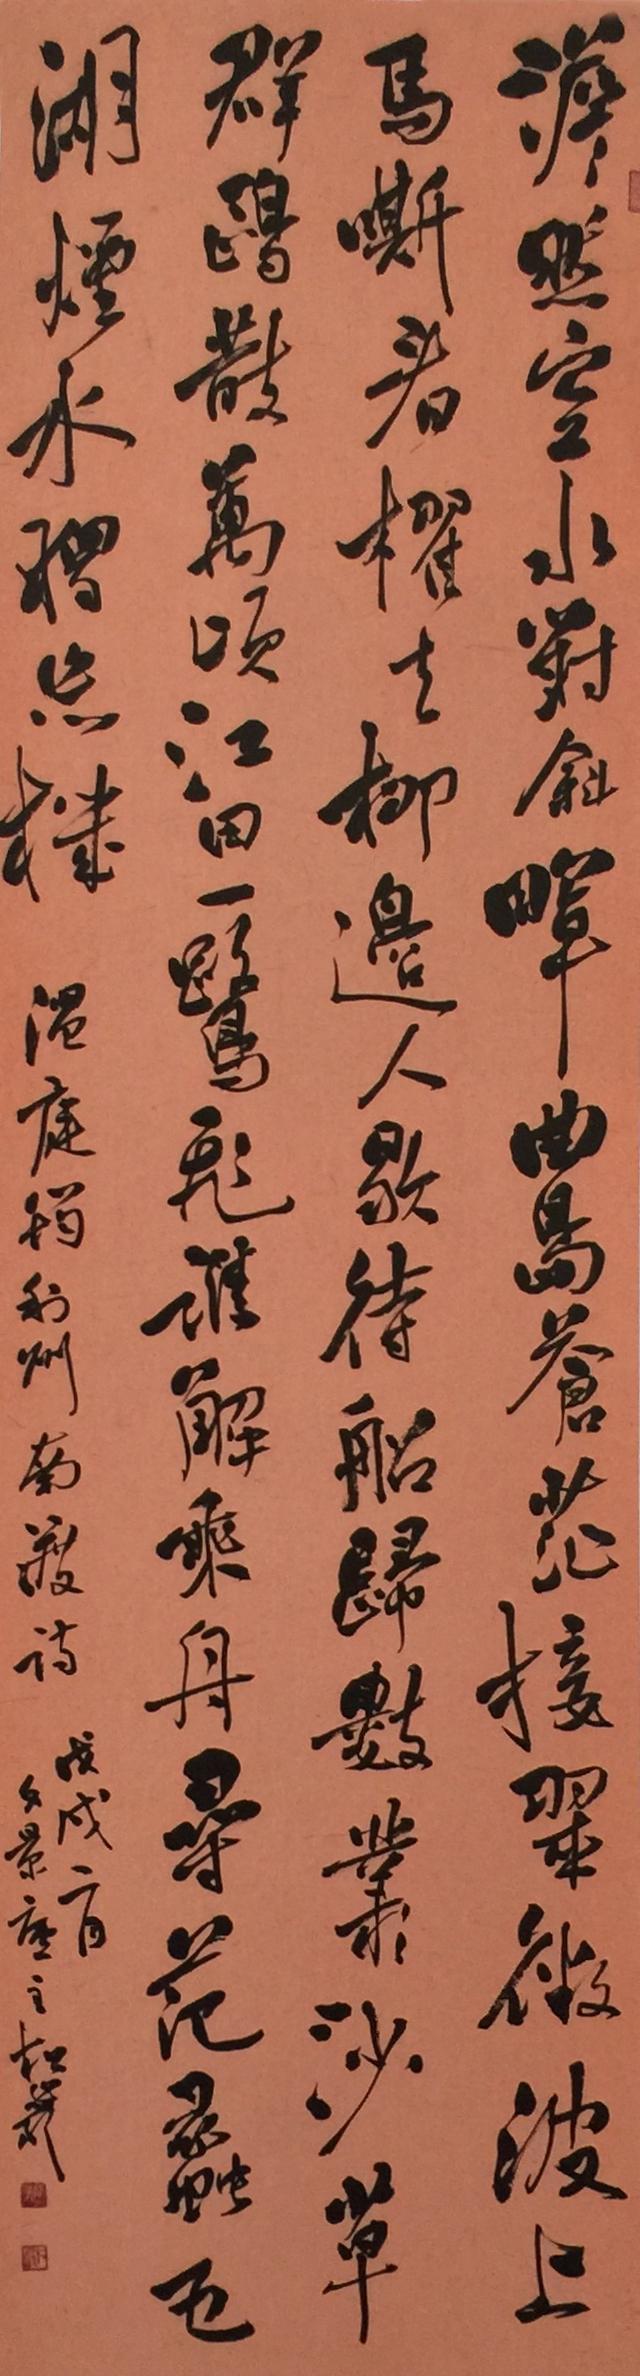 澹然空水對斜暉曲島蒼茫接翠微波上
馬嘶看櫂去柳邊人歇待船歸數叢沙草
群鷗散萬頃江田一鷺飛誰解乘舟尋范蠡五
湖煙水獨忘機
溫庭筠利州南渡詩
戊戌二月
景廬主